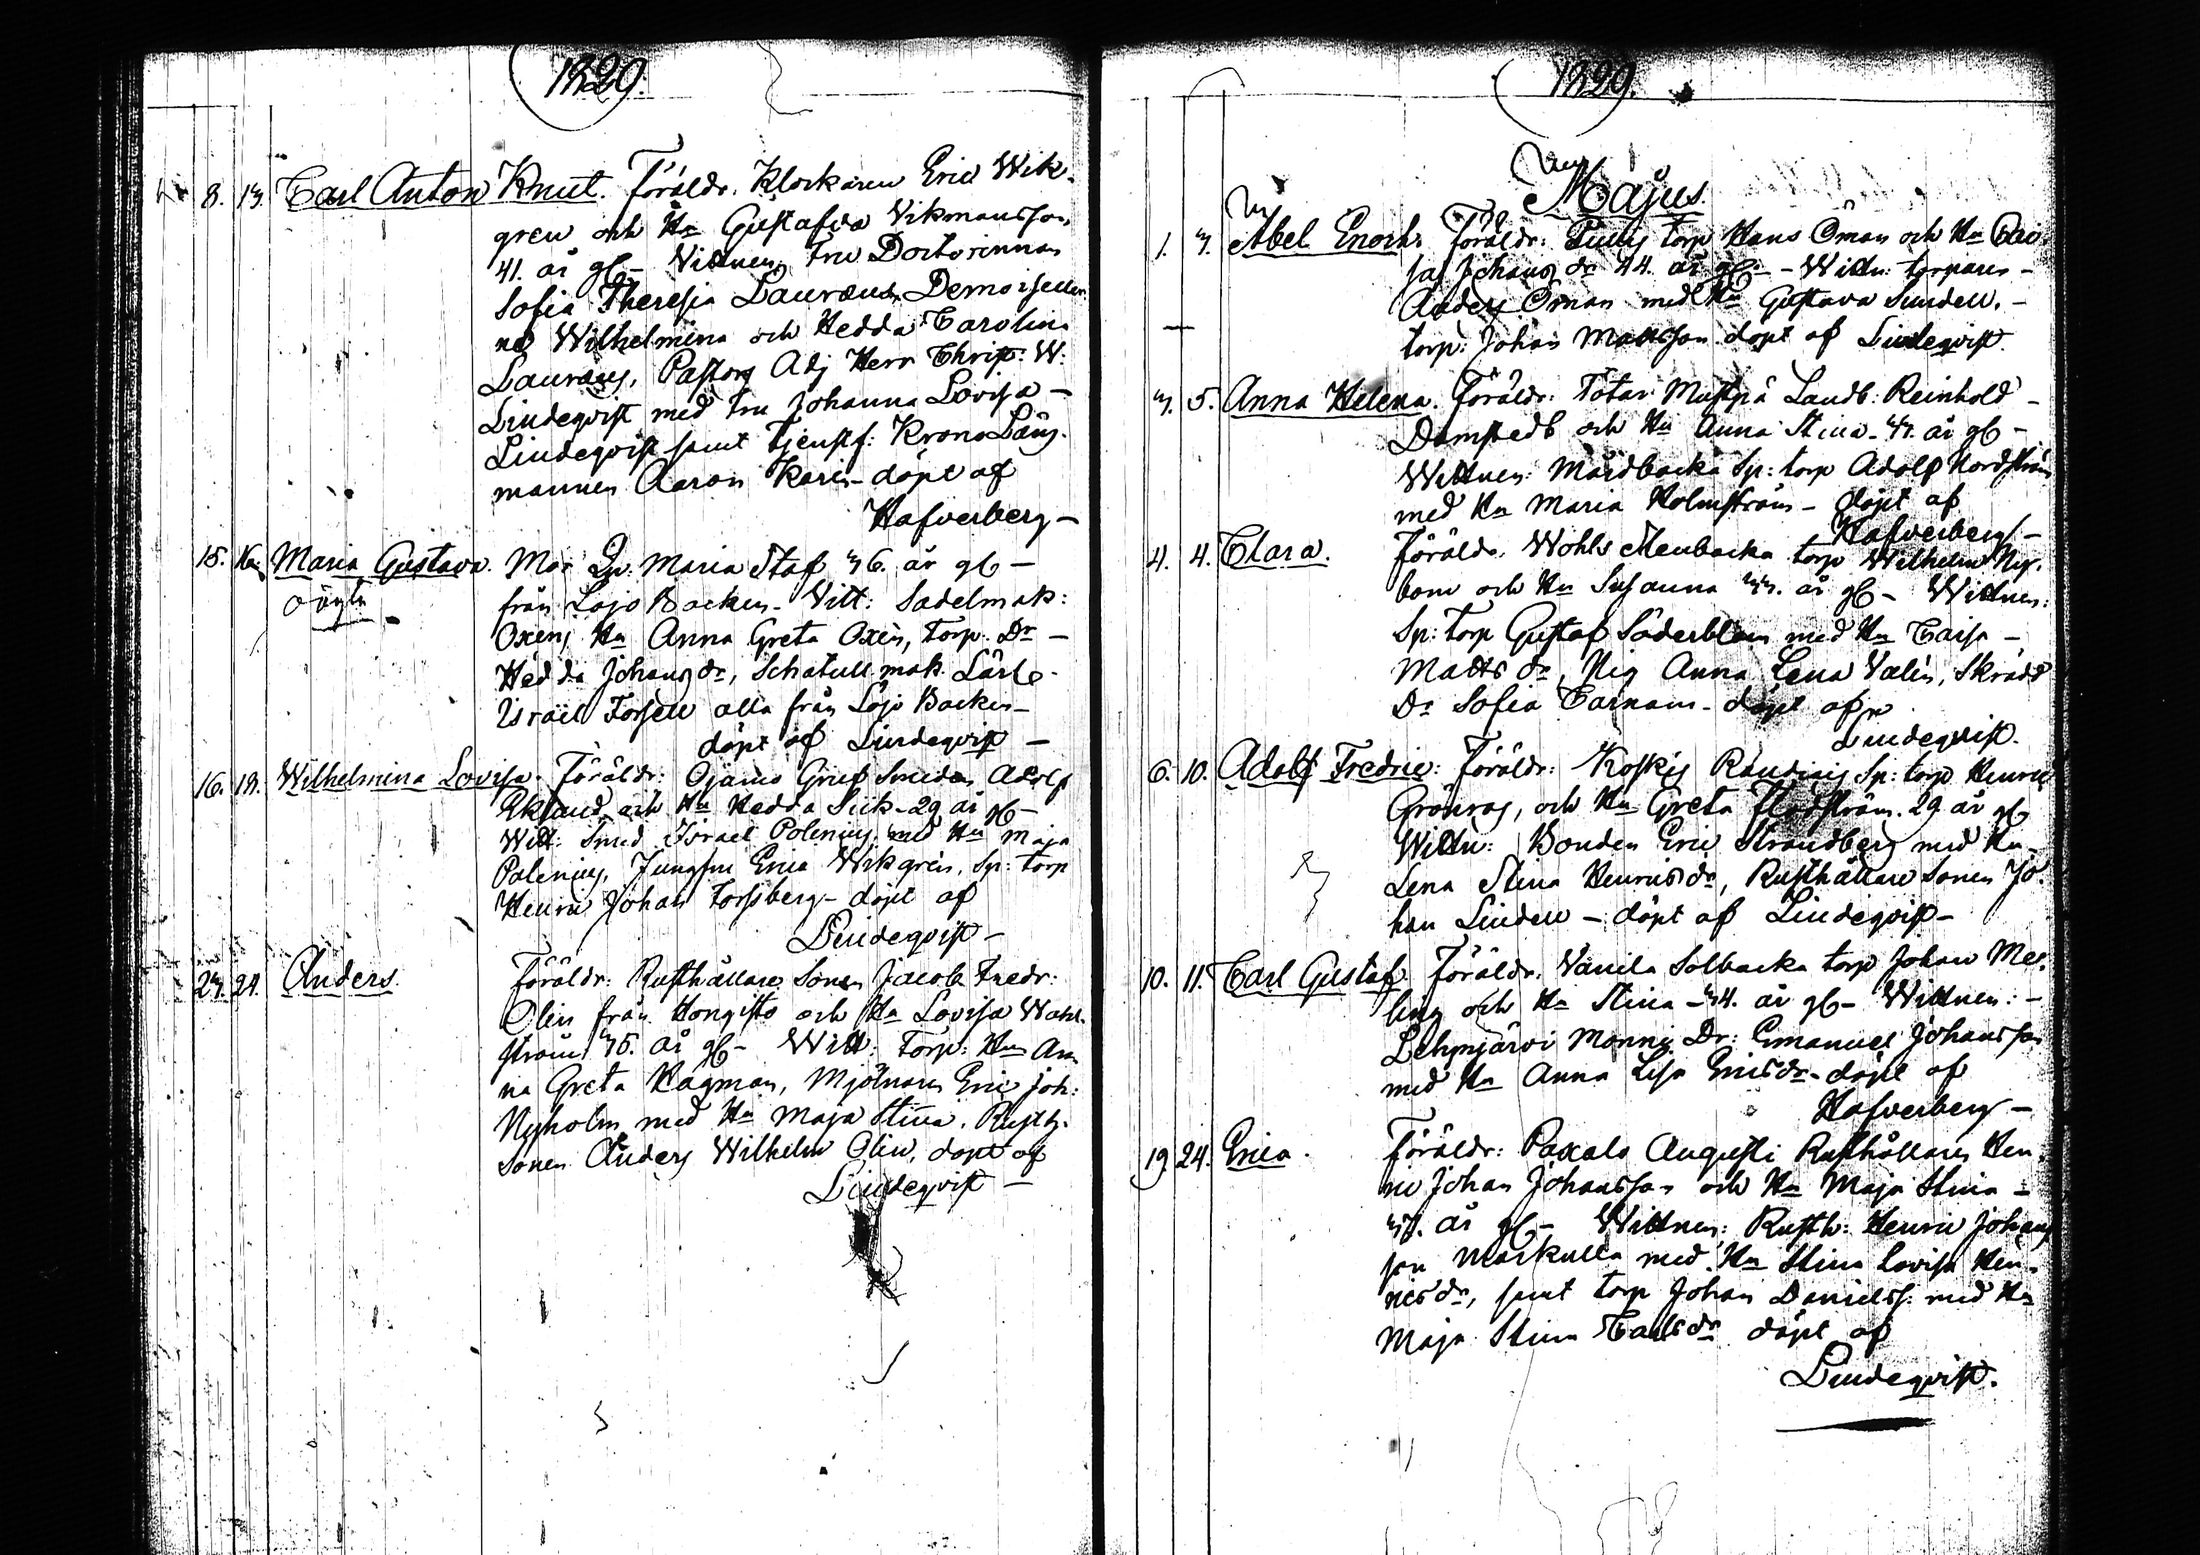 1829.
8. 13. Carl Anton Knut. Föräldr. Klockaren Eric Wik-
gren och Hu Gustafva Vikmansson
41. år gl – Vittnen, Fru Doctorinnan
Sofia Theresia Lauræus, Demoiseller
na Wilhelmina och Hedda Carolina
Lauræus, Pastors Adj Herr Christ. W.
Lindeqvist med fru Johanna Lovisa –
Lindeqvist samt Tjenstf: Krono Läns-
mannen Aaron Karen – döpt af
Hafverberg –
15. Maria Gustava. Mor Qv. Maria Staf 36. år gl –
oägta från Lojo Backen – Vitt: Sadelmak:
Oxens Hu Anna Greta Oxen, torp. Dr –
Hedda Johansdr, Schatull mak. Lärl.
Israel Forsell alla från Lojo Backen –
döpt af Lindeqvist –
16. 19. Wilhelmina Lovisa. Föräldr: Ojamo Gruf Smeden Adolf
Eklund och Hu Hedda Siik – 29 år gl –
Witt: Smed Israel Polenius med Hu Maja
Polenius, Jungfru Erica Wikgrén, Sp: torp
Henric Johan Forssberg – döpt af
Lindeqvist –
23. 24. Anders. Föräldr: Rusthållare Sonen Jacob Fredr:
Olin från Hongisto och Hu Lovisa Wahl-
ström 36. år gl – Witt: Torp: Hu An
na Greta Hagman, Mjölnaren Eric Joh:
Nyholm med Hu Maja Stina, Rusth.
Sonen Anders Wilhelm Olin, döpt af
Lindeqvist –
1829.
Majus.
1. 3. Abel Enoch. Föräldr: torp Hans Öman och Hu Cai-
sa Johansdr 44. år gl. – Wittn: torparen –
Anders Öman med Hu Gustava Sundell, –
torp: Johan Mattsson döpt af Lindeqvist.
3. 5. Anna Helena. Föräldr: Totar Mustpä Landb: Reinhold –
Damstedt och Hu Anna Stina – 37. år gl –
Wittnen: Mårdbacka Sp: torp Adolf Nordström
med Hu Maria Holmström – döpt af
Hafverberg –
4. 4. Clara. Föräldr. Wohls Stenbacka torp Wilhelm Ny-
bom och Hu Susanna 33. år gl – Wittnen:
Sp: torp Gustaf Söderblom med Hu Caisa –
Mattsdr, Pig Anna Lena Valin, Skrädd
Dr Sofia Carnam – döpt af
Lindeqvist.
6. 10. Adolf Fredric: Föräldr: Koskis Sp: torp Henric
Grönroos, och Hu Greta Flodström. 29 år gl
Wittn: Bonden Eric Strandberg med Hu –
Lena Stina Henricsdr, Rusthållare Sonen Jo-
han Lindell – döpt af Lindeqvist –
10. 11. Carl Gustaf. Föräldr. Vanila Solbacka torp Johan Me-
ling och Hu Stina – 34. år gl – Wittnen: –
Lehmjärvi Monni Dr: Emanuel Johansson
med Hu Anna Lisa Ericsdr – döpt af
Hafverberg –
19 24. Erica. Föräldr: Paxalo Augusti Rusthållaren Hen
ric Johan Johansson och Hu Maja Stina –
37. år gl – Wittnen: Rusth: Henric Johans
son Markulla med Hu Stina Lovisa Hen-
ricsdr, samt torp Johan Danielss: med Hu
Maja Stina Carlsdr döpt af
Lindeqvist.